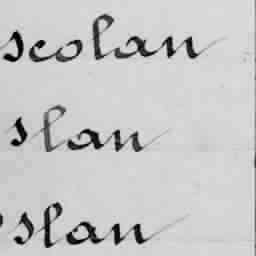 scolan
slan
slan